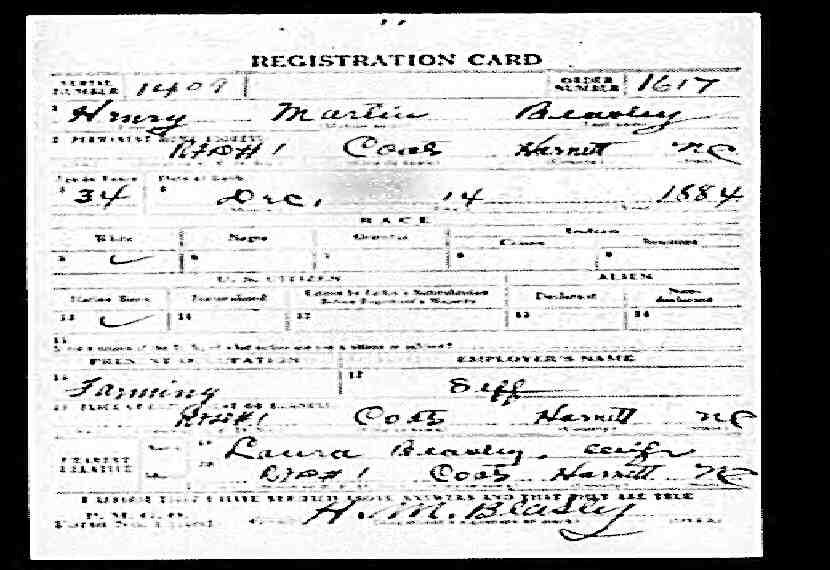 REGISTRATION CARD
SERIAL NUMBER 1409 ORDER NUMBER 1617
1 Henry Martin Beasley
2 PERMANENT HOME ADDRESS
RFD#1 Coats Harnett NC
Age in Years Date of Birth
34 Dec. 14 1884
RACE
White Negro Oriental Indian
Citizen Noncitizen
5 ✓ 6 7 8 9
U. S. CITIZEN ALIEN
Native Born Naturalized Citizen by Father's Naturalization Before Registrant's Majority Declarant Non-declarant
10 ✓ 11 12 13 14
15
PRESENT OCCUPATION EMPLOYER'S NAME
16 Farming 17 Self
18 PLACE OF EMPLOYMENT OR BUSINESS
RFD#1 Coats Harnett NC
NEAREST RELATIVE Name 19 Laura Beasley, wife
20 RFD#1 Coats Harnett NC
I AFFIRM THAT I HAVE VERIFIED ABOVE ANSWERS AND THAT THEY ARE TRUE
P. M. G. O.
H. M. Beasley